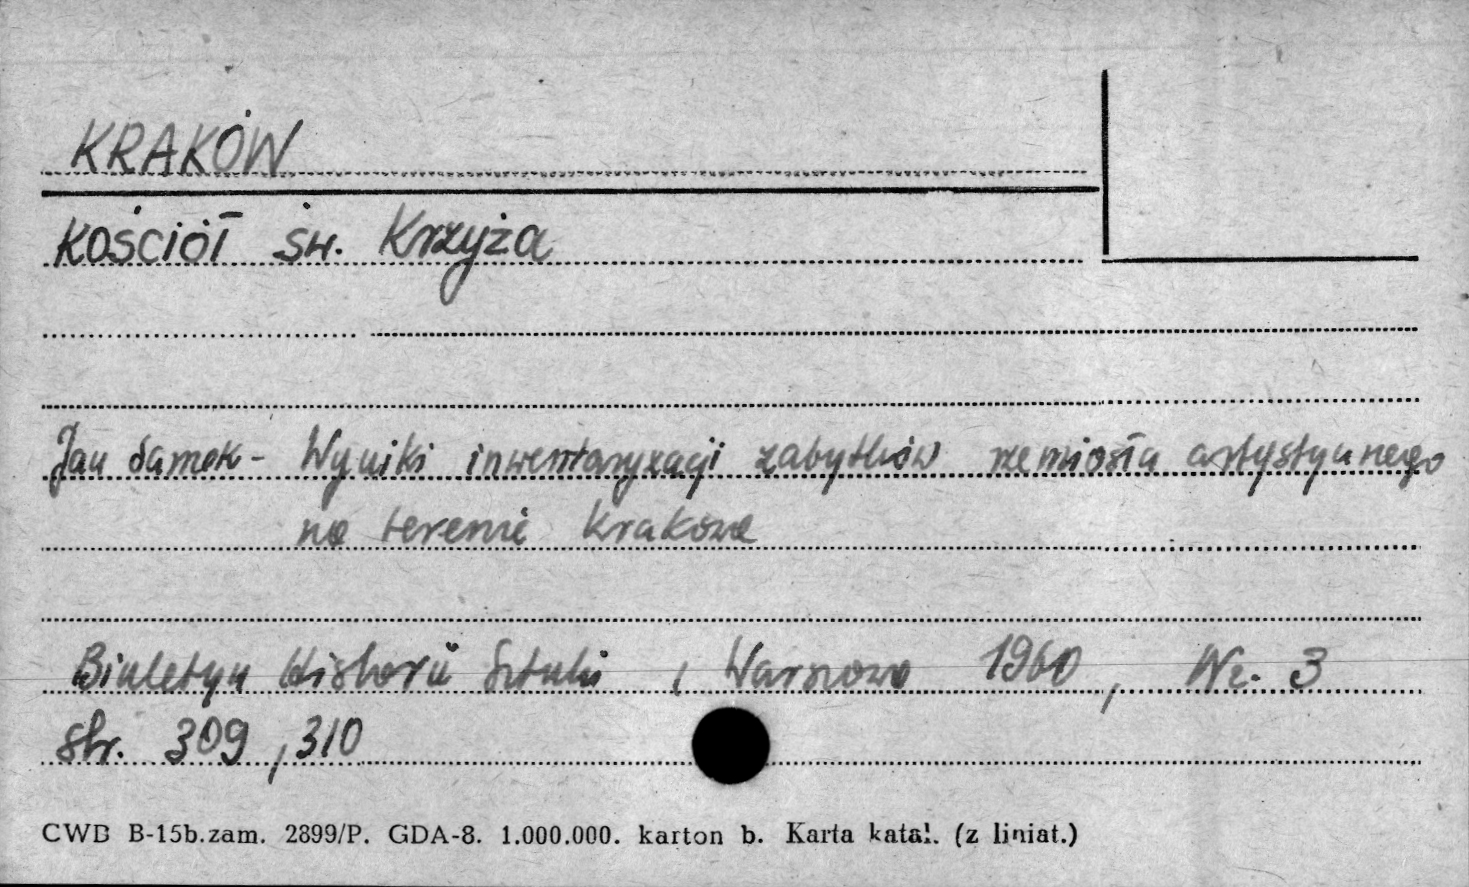 KRAKÓW
KOŚCIÓŁ św. Krzyża
Jan Samek - Wyniki inwentaryzacji zabytków rzemiosła artystycznego
na terenie Krakowa
Biuletyn Historii Sztuki, Warszawa 1960, Nr. 3
str. 309, 310
CWD B-15b.zam. 2899/P. GDA-8. 1.000.000. karton b. Karta katal. (z liniat.)